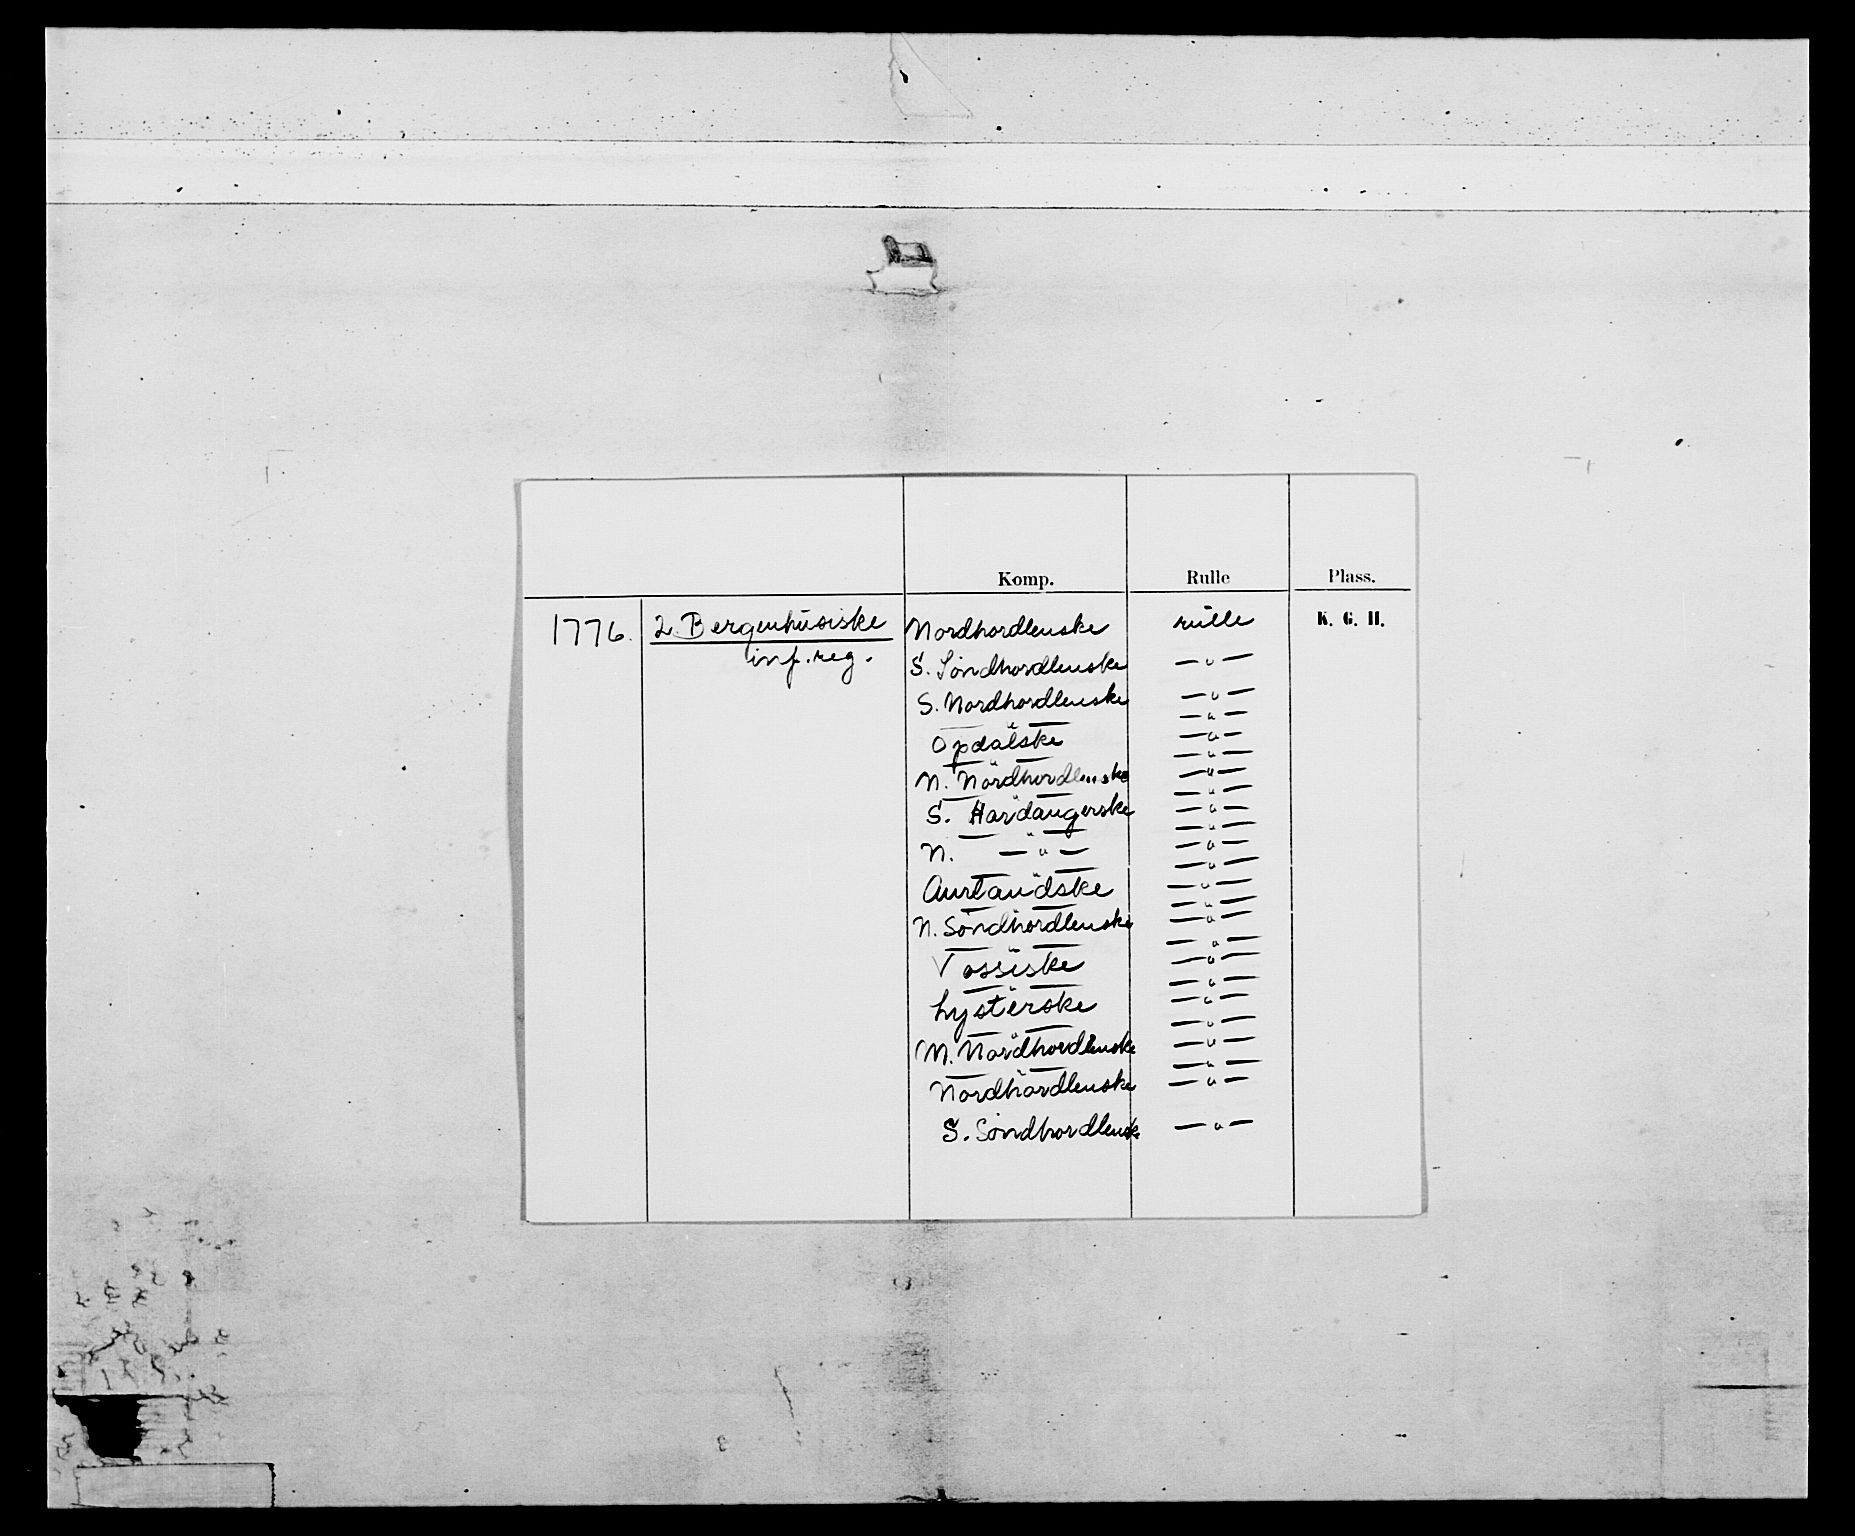 Komp. Rulle Plass.
1776. 2. Bergenhusiske Nordhordlenske rulle K. G. H.
inf. reg. S. Søndhordlenske — " —
S. Nordhordlenske — " —
— " — — " —
Opdalske — " —
— " — — " —
N. Nordhordlenske — " —
— " — — " —
S. Hardangerske — " —
— " — — " —
N. — " — — " —
— " — — " —
Aurlandske — " —
— " — — " —
N. Søndhordlenske — " —
— " — — " —
Vossiske — " —
— " — — " —
Lysterske — " —
— " — — " —
M. Nordhordlenske — " —
— " — — " —
Nordhordlenske — " —
S. Søndhordlenske — " —